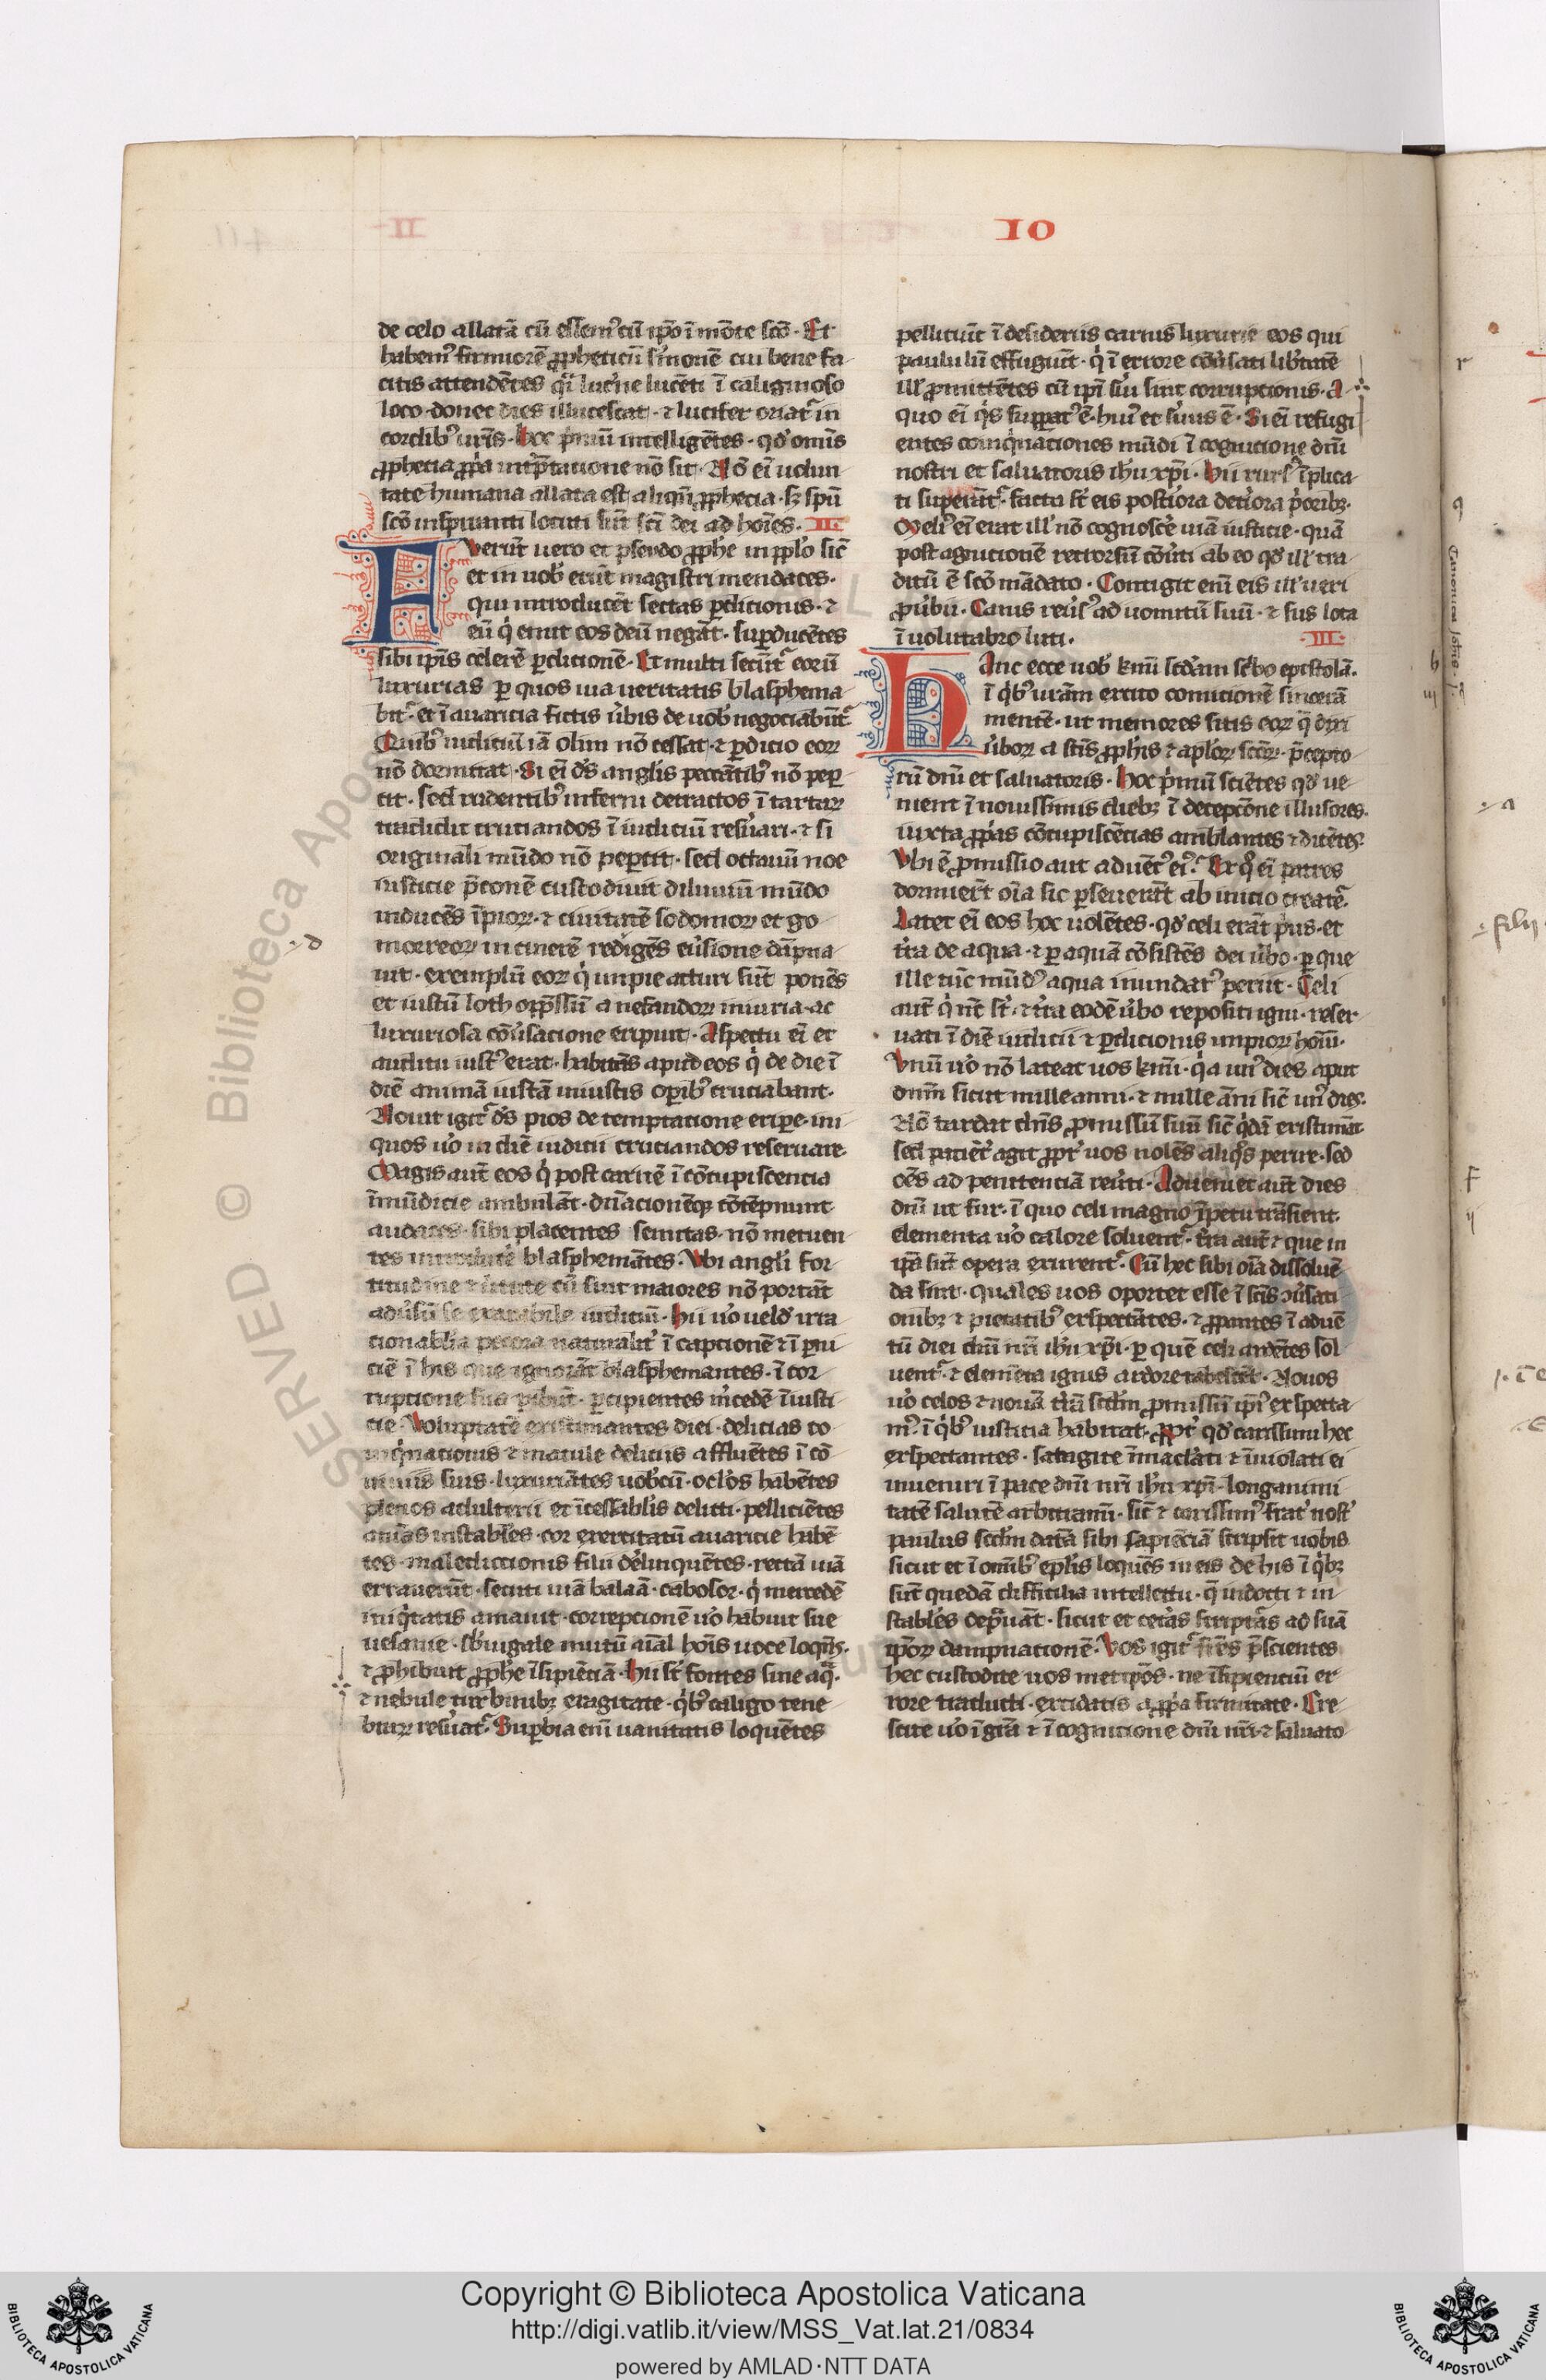 IO
de celo allatā cū essem᷒ cū ip̄o ī mōte scō · Et
habem᷒ firmiorē ꝓpheticū s̓monē cui bene fa
citis attendētes q̈i luc̓ne lucēti ī caliginoso
loco · donec dies illucescat · ⁊ lucifer oriat᷑ in
cordib᷒ ur̄is · hoc p̓mū intelligētes · qd̓ omīs
ꝓphecia ꝓp̓a int̓p̄tatione nō fit · Nō eī uolun
tate humana allata est aliqn̄ ꝓphecia · sꝫ spū
scō inspirante locuti sūt sc̄i dei ad hoīes · II ·
FVerūt uero et pseudo ꝓphe in pplo sic̄
et in uob̓ erūt magistri mendaces ·
qui introducēt sectas ꝑditionis · ⁊
eū q̓ emit eos deū negāt · suꝑducētes
sibi ip̄is celerē ꝑditionē · Et multi secūt᷑ eorū
luxurias ꝑ quos uia ueritatis blasphema
bit᷑ · et ī auaricia fictis u̓bis de uob̓ negociabūt᷑
Quib᷒ iudiciū iā olim nō cessat · ⁊ ꝑdicio eoꝝ
nō dormitat · Si eī d̓s angl̓is peccātib᷒ nō peꝑ
cit · sed rudentib᷒ inferni detractos ī tartaꝝ
tradidit cruciandos ī iudiciū res̓uari · ⁊ si
originali mūdo nō peꝑcit · sed octauū noe
iusticie p̄conē custodiuit diluuiū mūdo
inducēs īpioꝝ · ⁊ ciuitatē sodomoꝝ et go
morreoꝝ in cinerē redigēs eu̓sione dāpna
uit · exemplū eoꝝ q̓ impie acturi sūt ponēs
et iustū loth opp̄ssū a nefandoꝝ iniuria · ac
luxuriosa cōu̓satione eripuit · Aspectu eī et
auditu iust᷒ erat · habitās apud eos q̓ de die ī
diē animā iustā iniustis oꝑib᷒ cruciabant ·
Nouit igit᷑ d̓s pios de temptatione eriꝑe · ini
quos uo̓ in diē iudicii cruciandos reseruare ·
Magis aut̄ eos q̓ post carnē ī cōcupiscencia
īmūdicie ambulāt · dn̄acionēqꝫ cōtēpnunt ·
audaces · sibi placentes sectas · nō metuen
tes blasphemātes · Vbi angl̓i for
titudine cū sint maiores nō portāt
adu̓sū se iudiciū · hii uo̓ uelud̓ irra
pecora naturalit̓ ī captionē ⁊ ī ꝑni
ciē ī his que ignorāt blasphemantes · ī cor
ruptione sua ꝑibūt · ꝑcipientes m̓cedē īiusti
cie · Voluptatē existimantes diei · delicias co
īq̓nationis ⁊ macule deliciis affluētes ī cō
uiuiis suis · luxuriātes uob̓cū · oclo̓s habētes
plenos adulterii et īcessabl̓is delicti · pellicientes
animas instables · cor exercitatū auaricie habē
tes · maledictionis filii derelinquētes · rectā uiā
errauerūt · secuti uiā balaā · ex bosor · q̓ mercedē
iniq̓tatis amauit · correptionē uo̓ habuit sue
uesanie · sb̓iugale mutū aīal hoīs uoce loqn̄s ·
⁊ ꝓhibuit ꝓphe īsipiēciā · hii st̄ fontes sine aq̄ ·
⁊ nebule turbinibꝫ exagitate · q̓b᷒ caligo tene
braꝝ res̓uat᷑ · Suꝑbia enī uanitatis loquētes
pelliciūt ī desideriis carnis luxurie eos qui
paululū effugiūt · q̓ ī errore cōu̓sati lib̓tatē
ill̓ ꝓmittētes cū ip̄i s̓ui sint corruptionis · A
quo eī q̓s suꝑat᷒ ē · hui᷒ et s̓uus ē · Si eī refugi
entes coinq̓nationes mūdi ī cognitione dn̄i
nostri et saluatoris ih̄u xp̄i · hii rurs᷒ īplica
ti suꝑant᷑ · facta st̄ eis posteriora det̓iora p̓oribꝫ ·
Meli᷒ eī erat ill̓ nō cognosce̓ uiā iusticie · quā
post agnitionē retrorsū cōu̓ti ab eo qd̓ ill̓ tra
ditū ē scō mādato · Contigit enī eis ill̓ ueri
ꝓu̓bii · Canis reu̓s᷒ ad uomitū suū · ⁊ sus lota
ī uolutabro luti · III ·
HAnc ecce uob̓ km̄i scd̄am sc̓bo epistolā ·
ī q̓b᷒ ur̄am excito comitionē sincerā
mentē · ut memores sitis eoꝝ q̄ dixi
u̓boꝝ a sc̄is ꝓph̓is ⁊ apl̓oꝝ sctōꝝ · p̄cepto
rū dn̄i et saluatoris · hoc p̓mū sciētes qd̓ ue
nient ī nouissimis diebꝫ ī deceptōne illusores ·
iuxta ꝓp̓as cōcupiscēcias ambl̓antes ⁊ dicētes ·
Vbi ē ꝓmissio aut aduēt᷒ ei᷒ · Ex q̊ eī patres
dormierūt oīa sic ꝑseuerāt ab inicio creat̓e ·
Latet eī eos hoc uolētes · qd̓ celi erāt p̓us · et
tr̓a de aqua · ⁊ ꝑ aquā cōsistēs dei u̓bo · ꝑ que
ille tūc mūd᷒ aqua inundat᷒ ꝑiit · Celi
aut̄ q̓ nūc st̄ · ⁊ tr̓a eodē u̓bo repositi igni · reser
uati ī diē iudicii ⁊ ꝑditionis impioꝝ hoīm ·
Vnū uo̓ nō lateat uos km̄i · q̓a un᷒ dies aput
dn̄m sicut mille anni · ⁊ mille anī sic̄ un᷒ dies ·
Nō tardat dn̄s ꝓmissū suū sic̄ q̓dā existimāt
sed paciēt̓ agit ꝓpt̓ uos nolēs aliq̓s perire · sed
oēs ad penitenciā reu̓ti · Adueniet aut̄ dies
dn̄i ut fur · ī quo celi magno īpetu trāsient ·
elementa uo̓ calore soluent᷑ · tr̓a aut̄ ⁊ que in
ip̄a sūt opera exurent᷑ · Cū hec sibi oīa dissoluē
da sint · quales uos oportet esse ī sc̄is ꝯu̓sati
onibꝫ ⁊ pietatib᷒ exspectātes · ⁊ ꝓꝑantes ī aduē
tū diei dn̄i nr̄i ih̄u xp̄i · ꝑ quē celi ardētes sol
uent᷑ · ⁊ elemēta ignis ardore tabescēt · Nouos
uo̓ celos ⁊ nouā tr̓ā scd̄m ꝓmissū ip̄i᷒ exspecta
m᷒ · ī q̓b᷒ iusticia habitat · ꝓpt̓ qd̓ carissimi hec
exspectantes · satagite īmaclati ⁊ īuiolati ei
inueniri ī pace dn̄i nr̄i ih̄u xp̄i · longanimi
tatē salutē arbitiamī · sic̄ ⁊ carissim᷒ frat̓ nost̓
paulus scd̄m datā sibi sapiēciā scripsit uobis
sicut et ī omīb᷒ epl̓is loquēs in eis de his ī q̓bꝫ
sūt quedā difficilia intellectu · q̄ indocti ⁊ in
stables dep̄uāt · sicut et cetas scriptas ad suā
ip̄oꝝ dampnationē · Vos igit᷑ fr̄es p̄scientes
hec custodite uos metip̄os · ne īsipientiū er
rore traducti · excidatis a ꝓp̓a firmitate · Cre
scite uo̓ ī grā ⁊ ī cognitione dn̄i nr̄i · ⁊ saluato
Canonica
filij
Copyright © Biblioteca Apostolica Vaticana
http://digi.vatlib.it/view/MSS_Vat.lat.21/0834
powered by AMLAD·NTT DATA
BIBLIOTECA APOSTOLICA VATICANA
BIBLIOTECA APOSTOLICA VATICANA